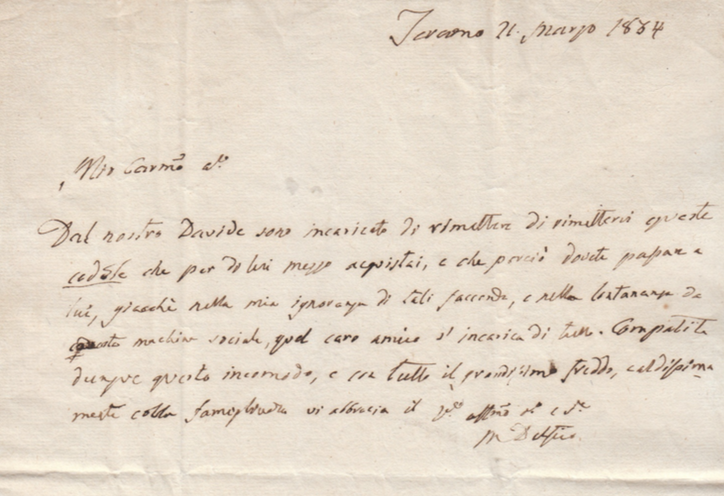 Teramo 21. Marzo 1834
Mio Carmo
Dal nostro Davide sono incaricato di rimettere di rimettervi queste
cedole che per di lui mezzo acquistai, e che perciò dovete passare a
lui, giacchè nella mia ignoranza di tali faccende, e nella lontananza da
questa machina sociale, quel caro amico s' incarica di tutto. Compatite
dunque questo incomodo, e con tutto il grandissimo freddo, caldissima
mente colla famigliuola vi abbraccia il
M Delfico